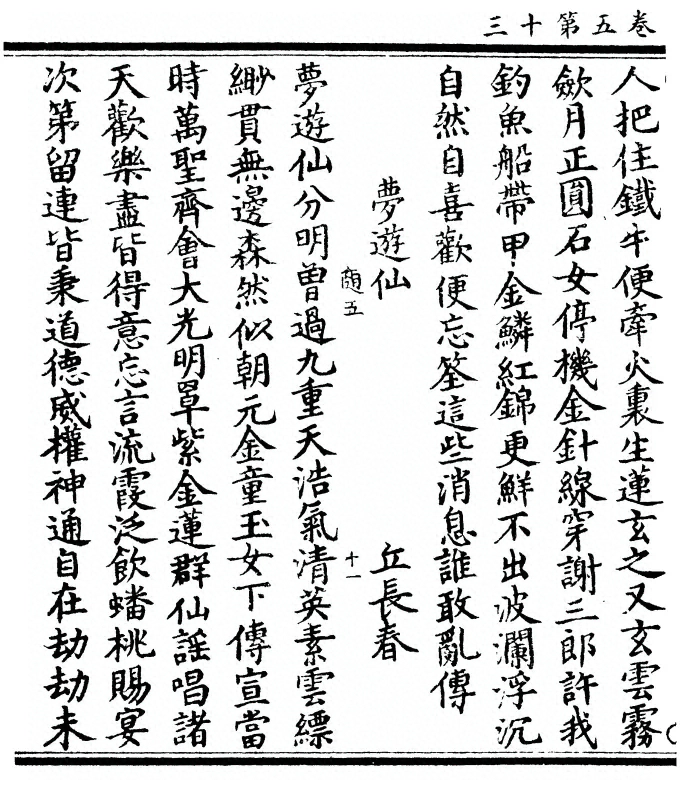 卷五第十三
人把住鐵牛便牽火裏生蓮玄之又玄雲霧
歛月正圓石女停機金針線穿謝三郎許我
釣魚船帶甲金鱗紅錦更鮮不出波瀾浮沉
自然自喜歡便忘筌這些消息誰敢亂傳
夢遊仙 丘長春
隨五 十一
夢遊仙分明曾過九重天浩氣清英素雲縹
緲貫無邊森然似朝元金童玉女下傳宣當
時萬聖齊會大光明罩紫金蓮群仙謡唱諸
天歡樂盡皆得意忘言流霞泛飲蟠桃賜宴
次第留連皆秉道德威權神通自在劫劫未